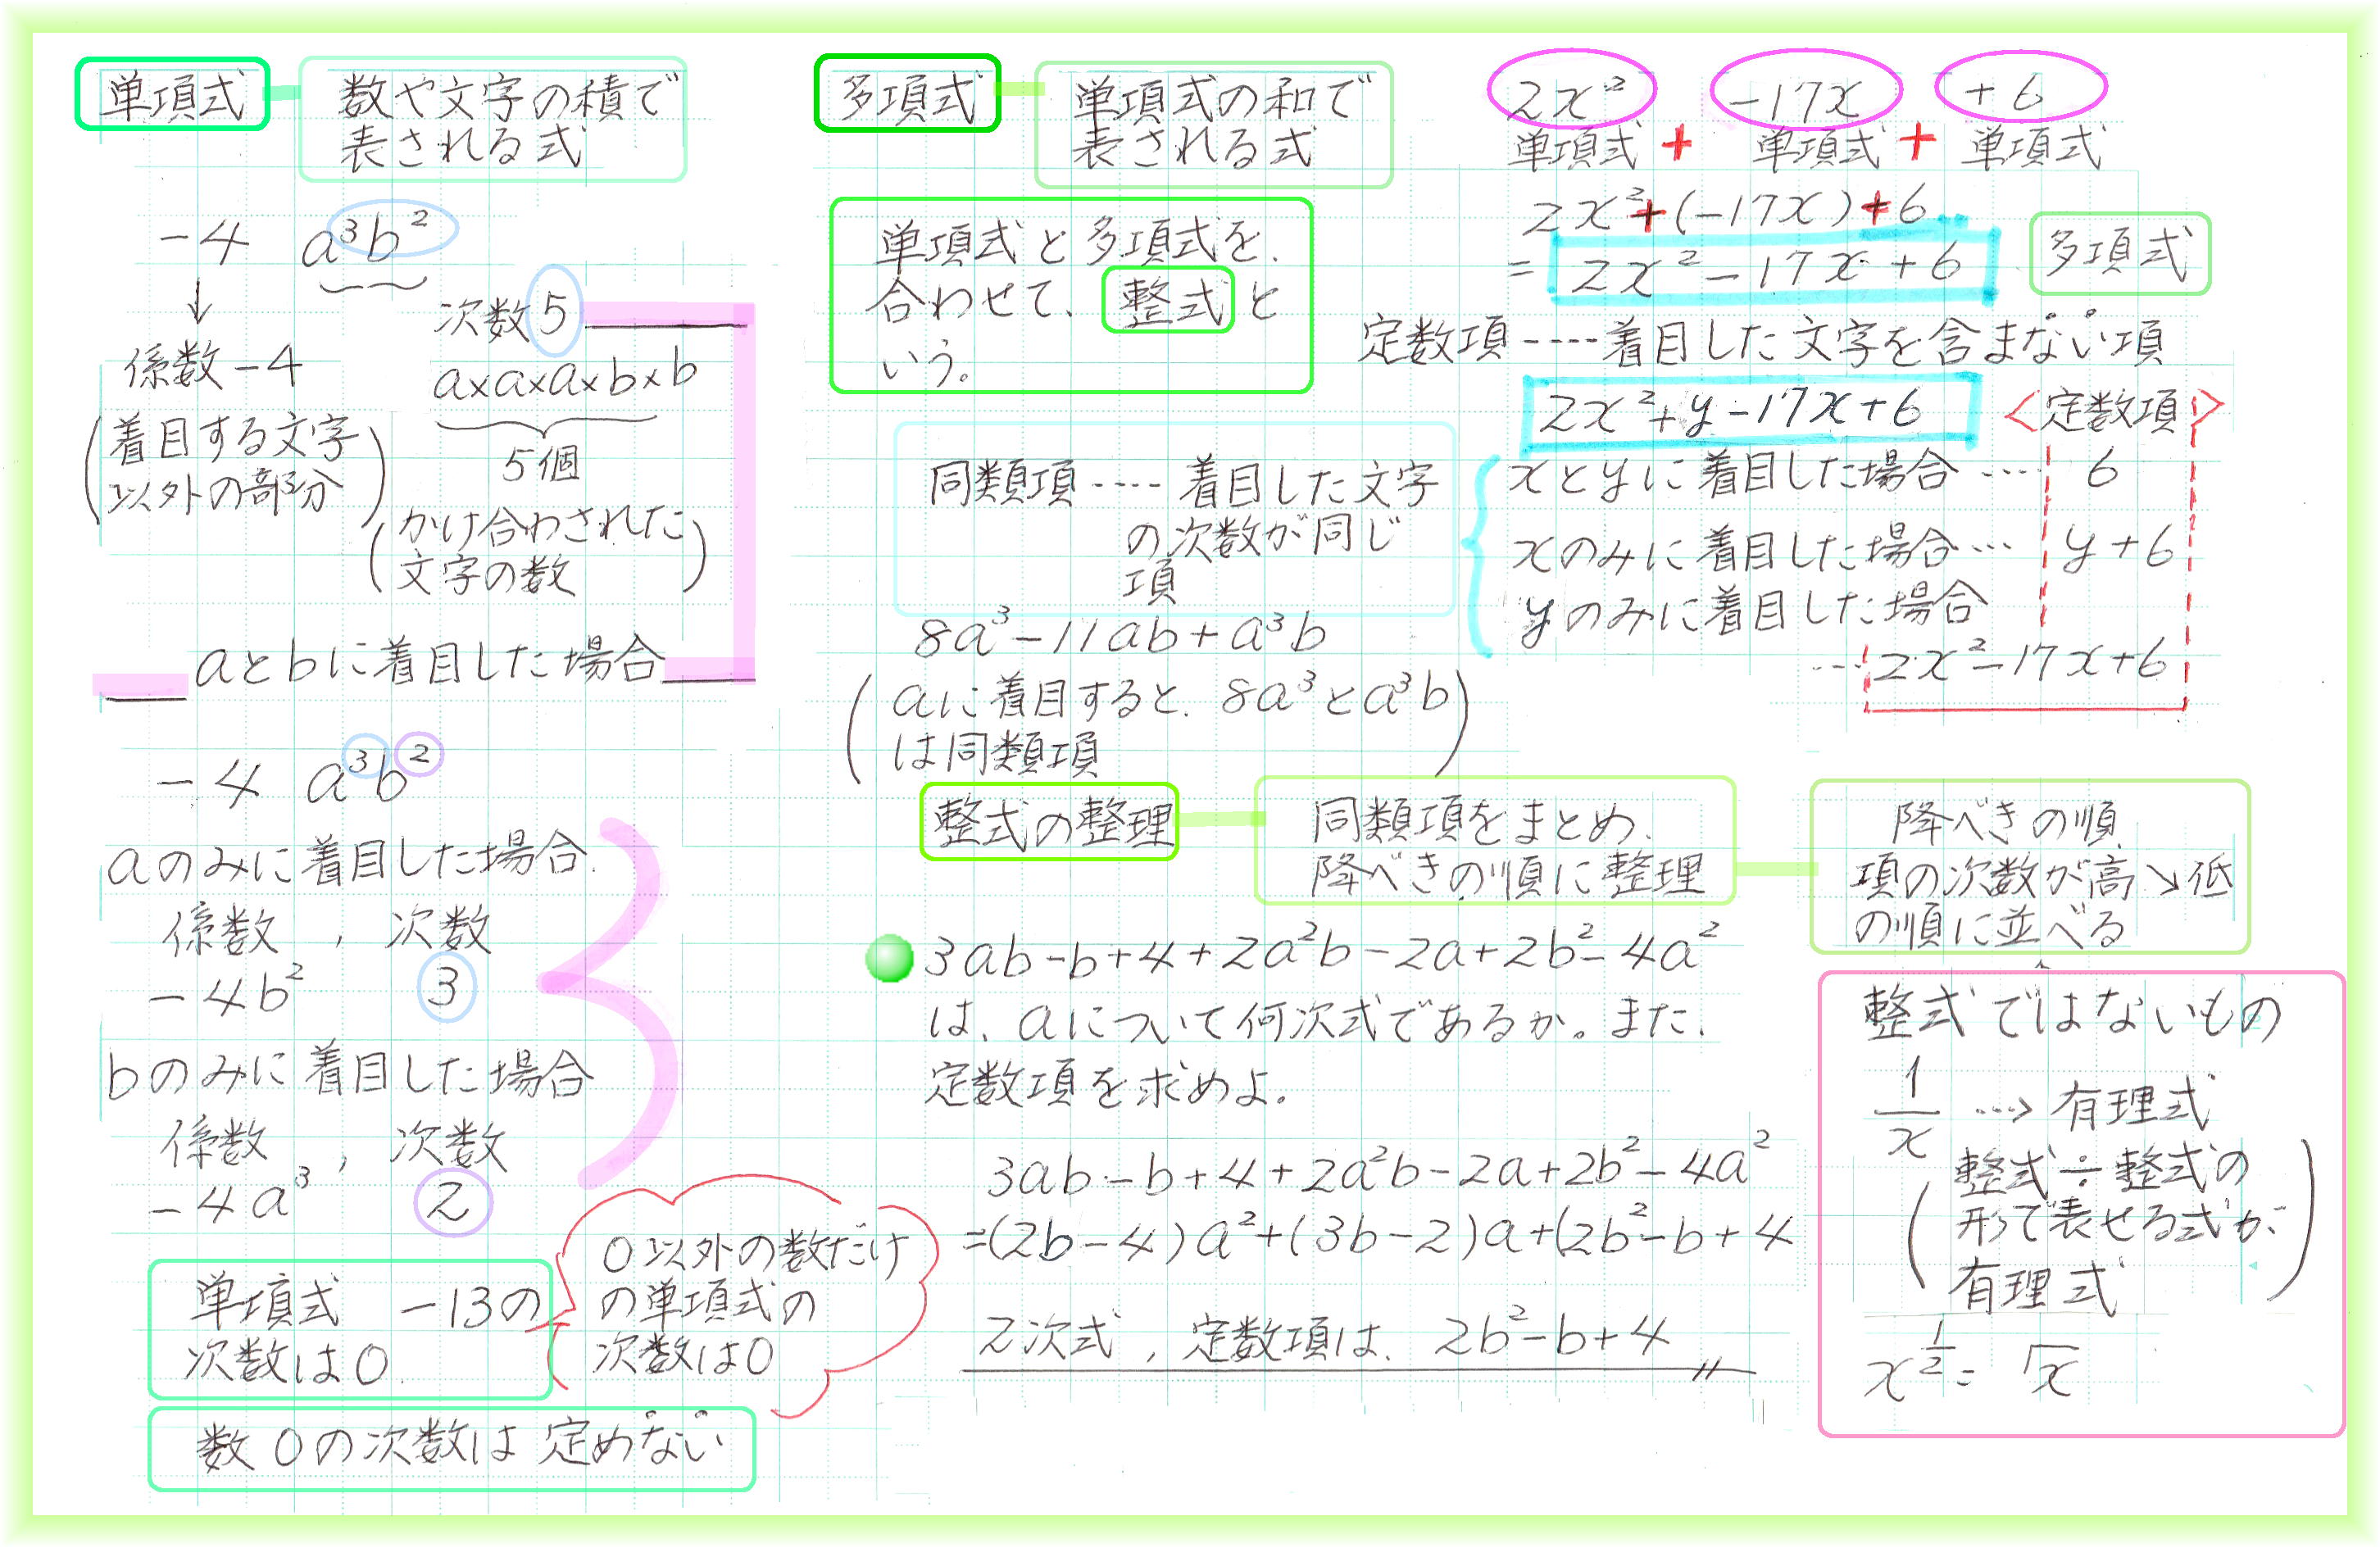 単項式
数や文字の積で
表される式
-4 a³b²
↓
係数-4
(着目する文字
以外の部分)
次数5
a×a×a×b×b
5個
(かけ合わされた
文字の数)
aとbに着目した場合
-4 a³b²
aのみに着目した場合
係数 , 次数
-4b² 3
bのみに着目した場合
係数 , 次数
-4a³ 2
単項式 -13の
次数は0
0以外の数だけ
の単項式の
次数は0
数0の次数は定めない
多項式
単項式の和で
表される式
単項式と多項式を、
合わせて、整式と
いう。
同類項----着目した文字
の次数が同じ
項
8a³-11ab+a³b
(aに着目すると、8a³とa³b
は同類項)
2x² -17x +6
単項式 + 単項式 + 単項式
2x²+(-17x)+6
= 2x²-17x+6 多項式
定数項----着目した文字を含まない項
2x²+y-17x+6 <定数項>
xとyに着目した場合…… 6
xのみに着目した場合… y+6
yのみに着目した場合
…2x²-17x+6
整式の整理
同類項をまとめ、
降べきの順に整理
降べきの順
項の次数が高↘低
の順に並べる
3ab-b+4+2a²b-2a+2b²-4a²
は、aについて何次式であるか。また、
定数項を求めよ。
3ab-b+4+2a²b-2a+2b²-4a²
=(2b-4)a²+(3b-2)a+(2b²-b+4
2次式, 定数項は、2b²-b+4
整式ではないもの
1/x …> 有理式
(整式÷整式の
形で表せる式が
有理式)
x^(1/2) = √x